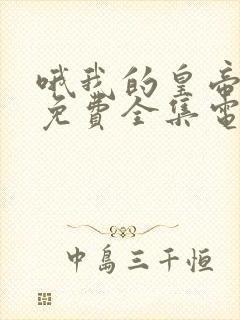 哦我的皇帝
免費全集電
中島三千恒